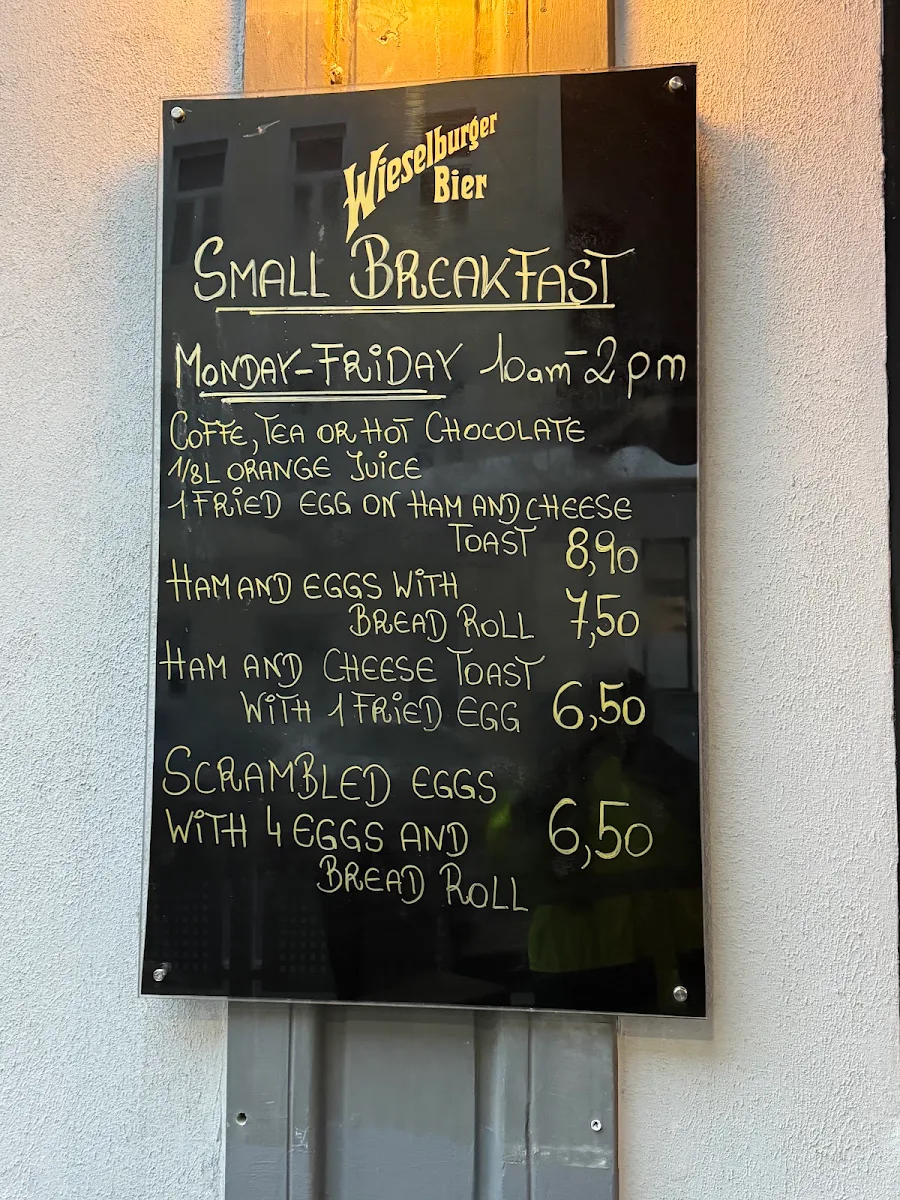 Wieselburger
Bier
SMALL BREAKFAST
MONDAY-FRIDAY 10am-2pm
COFFE, TEA OR HOT CHOCOLATE
1/8L ORANGE JUICE
1 FRIED EGG ON HAM AND CHEESE
TOAST 8,90
HAM AND EGGS WITH
BREAD ROLL 7,50
HAM AND CHEESE TOAST
WITH 1 FRIED EGG 6,50
SCRAMBLED EGGS
WITH 4 EGGS AND 6,50
BREAD ROLL